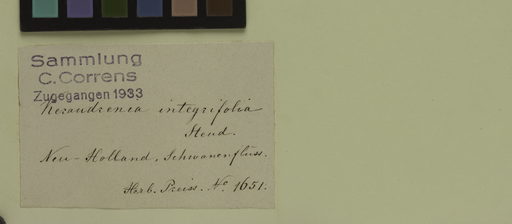 Sammlung
C. Correns
Zugegangen 1933
Keraudrenia integrifolia
Steud.
Neu-Holland, Schwanenfluss.
Herb. Preiss. No 1651.